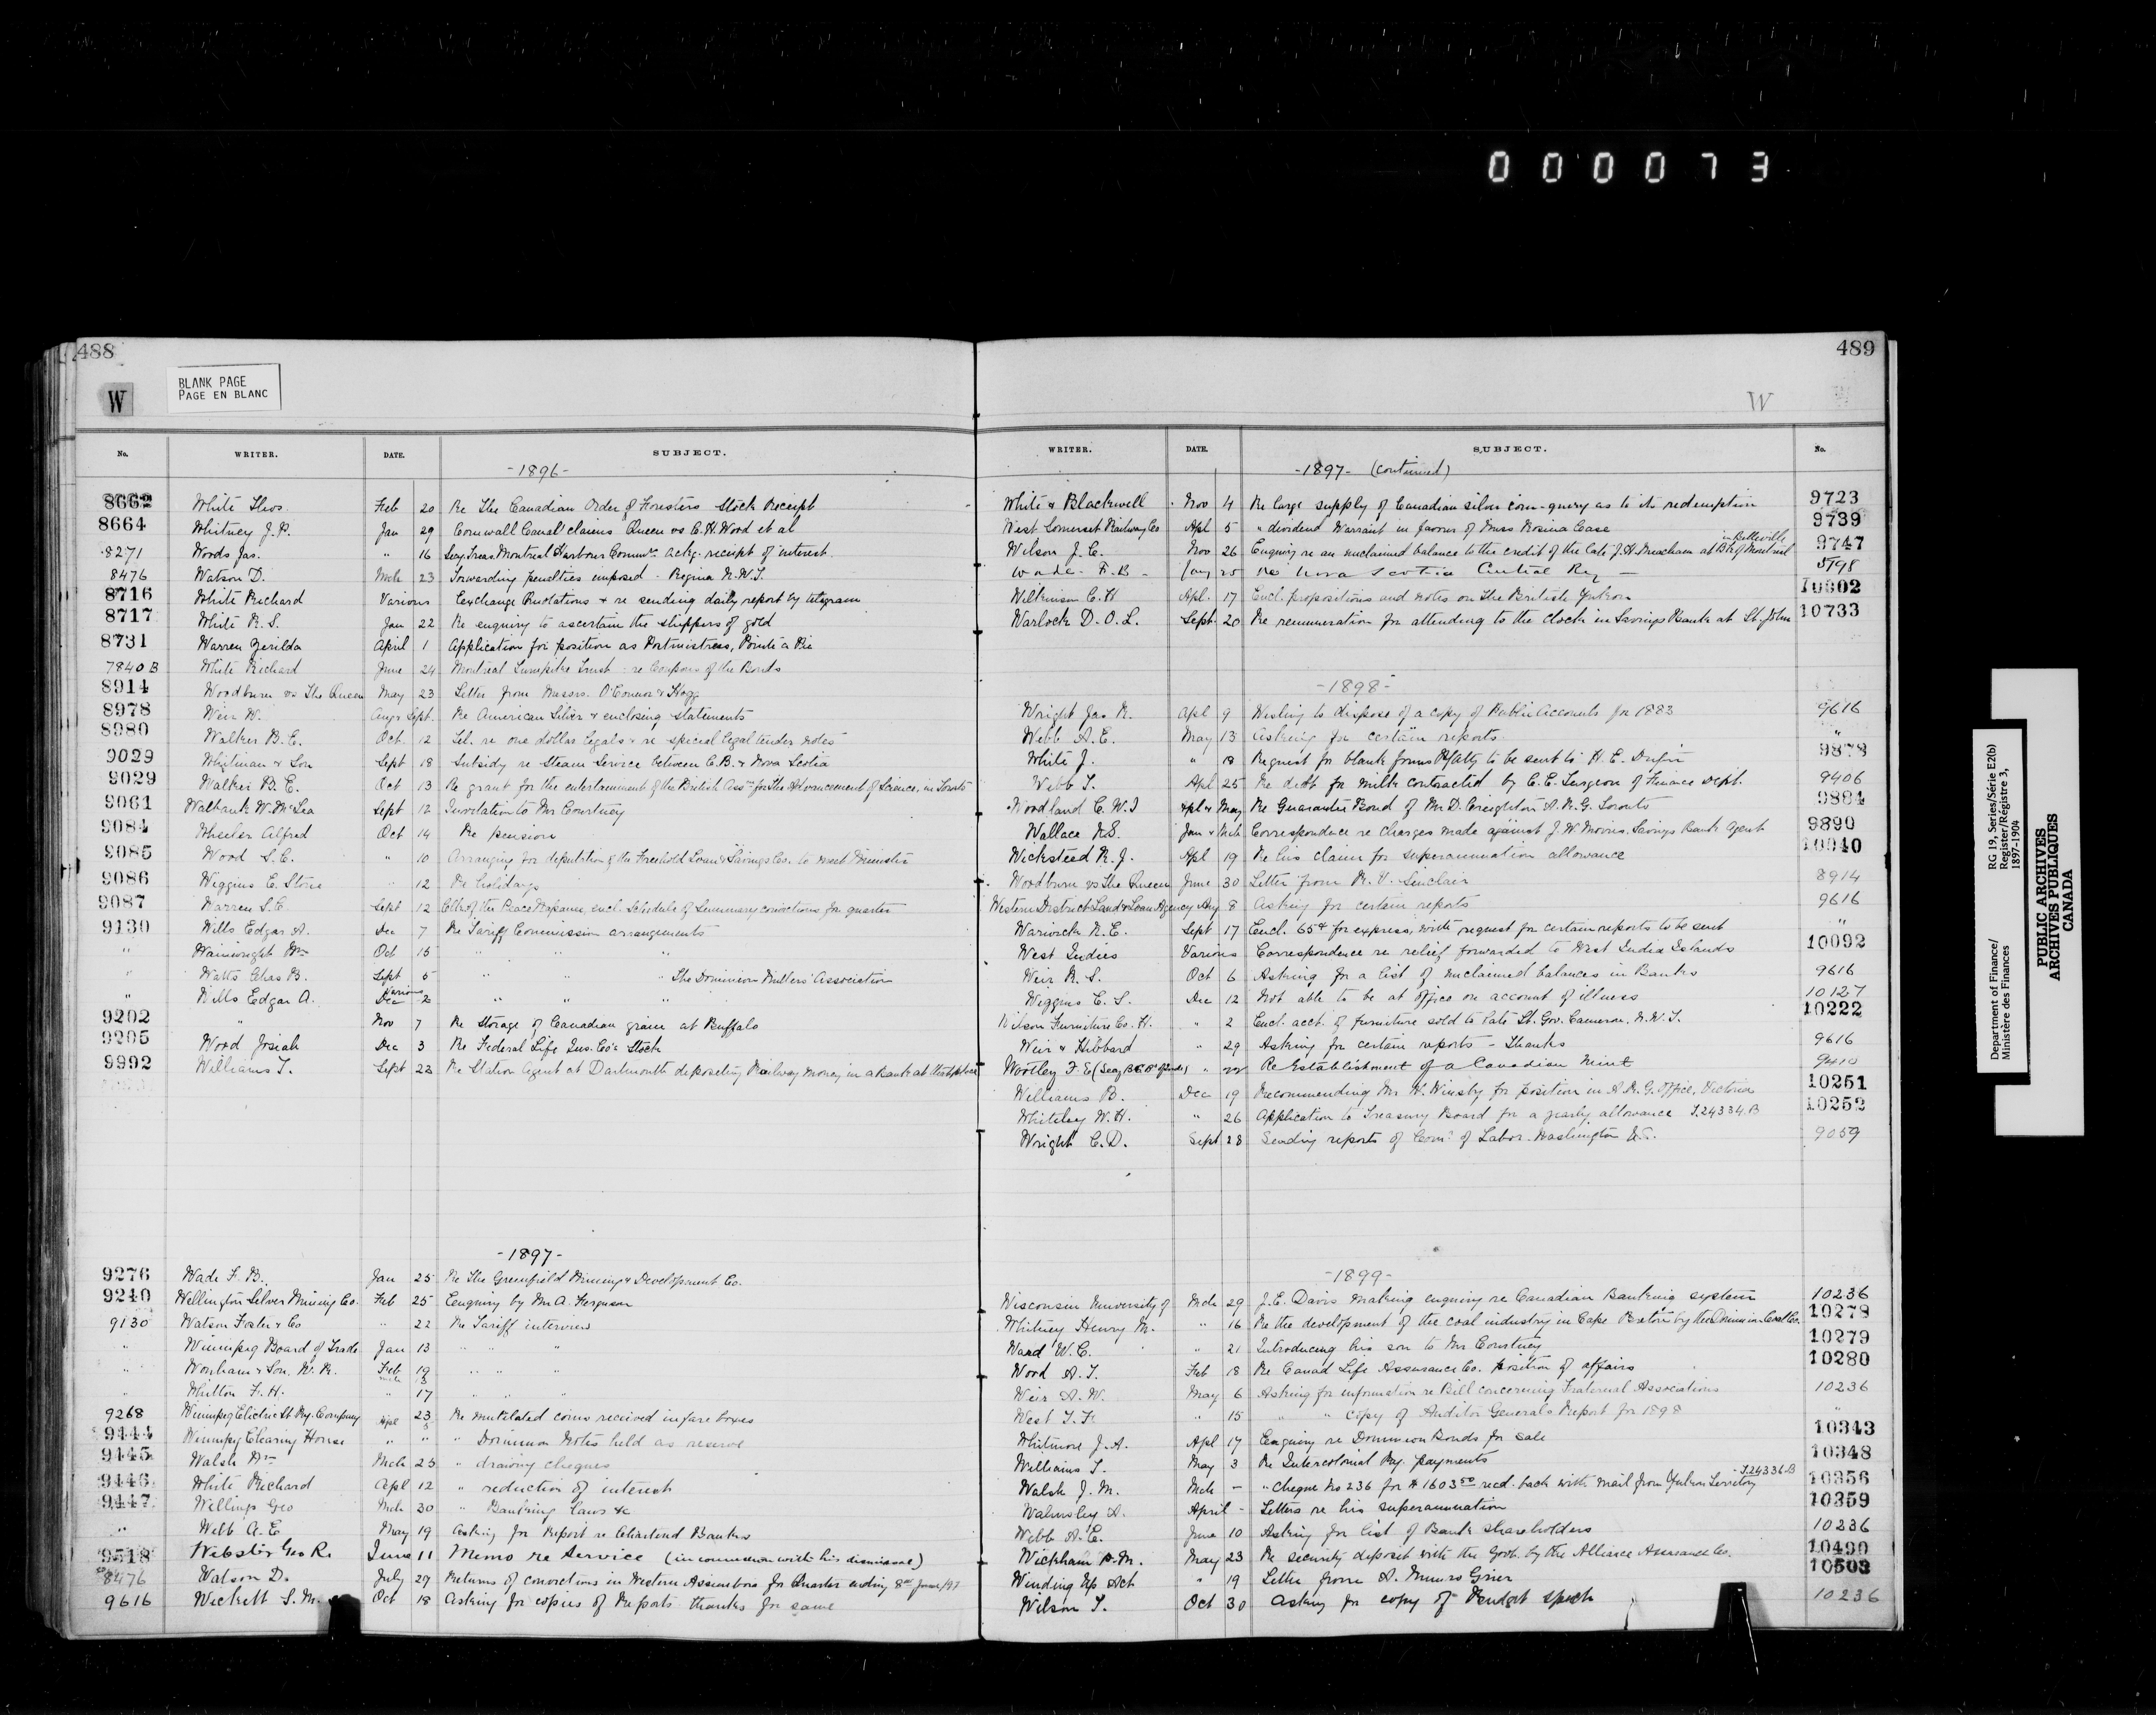 000073
488
BLANK PAGE
PAGE EN BLANC
W
No. WRITER. DATE. SUBJECT.
-1896-
8662 White Thos. Feb 20 Re The Canadian Order of Foresters Stock Receipt
8664 Whitney J.P. Jan 29 Cornwall Canal claims Queen vs C.H. Wood et al
8271 Woods Jas. " 16 Secy. Treas. Montreal Harbour Commrs. ackg. receipt of interest.
8476 Watson D. Mch 23 Forwarding penalties imposed - Regina N.W.T.
8716 White Richard Various Exchange Quotations & re sending daily report by telegram
8717 White R.S. Jan 22 Re enquiry to ascertain the shippers of gold
8731 Warren Zerilda April 1 Application for position as Postmistress, Pointe a Pie
7840 B White Richard June 24 Montreal Turnpike Trust - re Coupons of the Bonds
8914 Woodburn vs The Queen May 23 Letter from Messrs. O'Connor & Hogg
8978 Weir W. Aug & Sept. Re American Silver & enclosing statements
8980 Walker B.E. Oct. 12 Tel. re one dollar legals & re special legal tender notes
9029 Whitman & Son Sept 18 Subsidy re Steam Service between C.B. & Nova Scotia
9029 Walker B.E. Oct 13 Re grant for the entertainment of the British Assn for the Advancement of Science, in Toronto
9061 Walbank W. McLea Sept 12 Invitation to Mr Courtney
9084 Wheeler Alfred Oct 14 Re pension
9085 Wood S.C. " 10 Arranging for deputation of the Freehold Loan & Savings Co. to meet Minister
9086 Wiggins E. Stone " 12 Re holidays
9087 Warren S.E. Sept 12 Clk of the Peace Napanee, encl. Schedule of Summary convictions for quarter
9130 Wills Edgar A. Dec 7 Re Tariff Commission arrangements
" Wainwright Wm Oct 15 " " "
" Watts Chas B. Sept 5 " " " The Dominion Millers' Association
" Wills Edgar A. Various Dec 2 " " "
9202 " Nov 7 Re Storage of Canadian grain at Buffalo
9205 Wood Josiah Dec 3 Re Federal Life Ins. Co's Stock
9992 Williams T. Sept 23 Re Station Agent at Dartmouth depositing Railway money in a Bank at
-1897-
9276 Wade F.B. Jan 25 Re The Greenfield Mining & Development Co.
9240 Wellington Silver Mining Co. Feb 25 Enquiry by Mr A. Ferguson
9130 Watson Foster & Co " 22 Re Tariff interview
" Winnipeg Board of Trade Jan 13 " " "
" Wonham & Son, W.R. Feb 19 " " "
" Whitton F.H. " 17 " " "
9268 Winnipeg Electric St Ry. Company Apl 23 Re mutilated coins received in fare boxes
9444 Winnipeg Clearing House " " " Dominion Notes held as reserve
9445 Walsh Wm Mch 23 " drawing cheques
9446 White Richard Apl 12 " reduction of interest
9447 Wellings Geo Mch 30 " Banking laws &c
" Webb A.E. May 19 Asking for Report re Chartered Banks
9518 Webster Geo R. June 11 Memo re Service (in connection with his dismissal)
8476 Watson D. July 29 Returns of convictions in Western Assiniboia for Quarter ending 8th June/97
9616 Wickett S.M. Oct 18 Asking for copies of Reports thanks for same
489
W
WRITER. DATE. SUBJECT. No.
-1897- (continued)
White & Blackwell Nov 4 Re large supply of Canadian silver coin - query as to its redemption 9723
West Somerset Railway Co Apl 5 " dividend Warrant in favour of Miss Rosina Case 9739
Wilson J.C. Nov 26 Enquiry re an unclaimed balance to the credit of the late J.H. Meacham at Bk of Montreal in Belleville 9747
Wade F.B. Jany 25 Re Nova Scotia Central Ry 5798
Wilkinson C.H. Apl. 17 Encl. propositions and notes on The British Yukon 10002
Warlock D.O.L. Sept 20 Re remuneration for attending to the clock in Savings Bank at St. John 10733
-1898-
Wright Jas R. Apl 9 Wishing to dispose of a copy of Public Accounts for 1883 9616
Webb A.E. May 13 Asking for certain reports. "
White J. " 18 Request for blank forms P of atty to be sent to H.E. 9878
Webb T. Apl 25 Re debt for milk contracted by C.E. Turgeon of Finance Dept. 9406
Woodland C.W.I Apl & May Re Guarantee Bond of Mr D. Creighton A.R.G. Toronto 9884
Wallace N.S. Jan & Mch Correspondence re charges made against J.W. Morris, Savings Bank Agent 9890
Wicksteed R.J. Apl 19 Re his claim for superannuation allowance 10040
Woodburn vs The Queen June 30 Letter from R.V. Sinclair 8914
Western District Land & Loan Agency Aug 8 Asking for certain reports 9616
Warwick N.E. Sept 17 Encl. 65¢ for express, with request for certain reports to be sent "
West Indies Various Correspondence re relief forwarded to West India Islands 10092
Weir R.S. Oct 6 Asking for a list of unclaimed balances in Banks 9616
Wiggins E.S. Dec 12 Not able to be at office on account of illness 10127
Wilson Furniture Co. H. " 2 Encl. acct. of furniture sold to late Lt. Gov. Cameron, N.W.T. 10222
Weir & Hibbard " 29 Asking for certain reports - thanks 9616
Woolley F.E (Secy B.C. Bd of Trade) " 22 Re Establishment of a Canadian Mint 9410
Williams B. Dec 19 Recommending Mr H. Winsby for position in A.R.G. Office, Victoria 10251
Whiteley W.H. " 26 Application to Treasury Board for a yearly allowance T.24334.B 10252
Wright C.D. Sept 28 Sending reports of Comr of Labor Washington &c. 9059
-1899-
Wisconsin University of Mch 29 J.E. Davis making enquiry re Canadian Banking system 10236
Whitney Henry M. " 16 Re the development of the coal industry in Cape Breton by the Dominion Coal Co. 10278
Ward W.C. " 21 Introducing his son to Mr Courtney 10279
Wood A.T. Feb 18 Re Canad Life Assurance Co. position of affairs 10280
Weir A.W. May 6 Asking for information re Bill concerning Fraternal Assocations 10236
West T.F. " 15 " " copy of Auditor Generals Report for 1898 "
Whitmore J.A. Apl 17 Enquiry re Dominion Bonds for sale 10343
Williams T. May 3 Re Intercolonial Ry. payments 10348
Walsh J.M. Mch - " Cheque No 236 for $1603.50 recd. back with mail from Yukon Territory T.24336.B 10356
Walmsley A. April - Letters re his superannuation 10359
Webb A.E. June 10 Asking for list of Bank shareholders 10236
Wickham P.M. May 23 Re security deposit with the Govt. by the Alliance Assurance Co. 10490
Winding Up Act " 19 Letter from A. Munro Grier 10503
Wilson T. Oct 30 Asking for copy of Budget speech 10236
Department of Finance/
Ministère des Finances
RG 19, Series/Série E2(b)
Register/Régistre 3,
1897-1904
PUBLIC ARCHIVES
ARCHIVES PUBLIQUES
CANADA